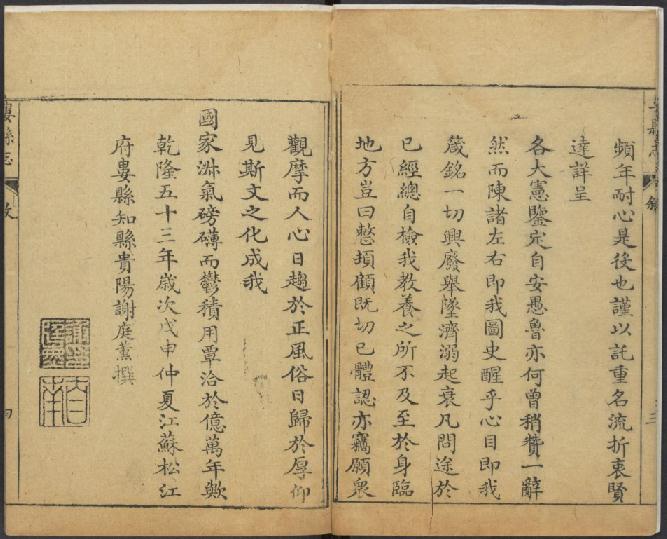 頻年耐心是後也謹以託重名流折衷賢
達詳呈
各大憲鑒定自安愚魯亦何曾稍贊一辭
然而陳諸左右即我圖史醒乎心目即我
箴銘一切興廢舉墜濟溺起衰凡問途於
已經總自檢我教養之所不及至於身臨
地方豈曰憗頊顧既切已體認亦竊願衆
觀摩而人心日趨於正風俗日歸於厚仰
見斯文之化成我
國家淋氣磅礴而鬱積用覃洽於億萬年歟
乾隆五十三年歲次戊申仲夏江蘇松江
府婁縣知縣貴陽謝庭薰撰
婁縣志
四